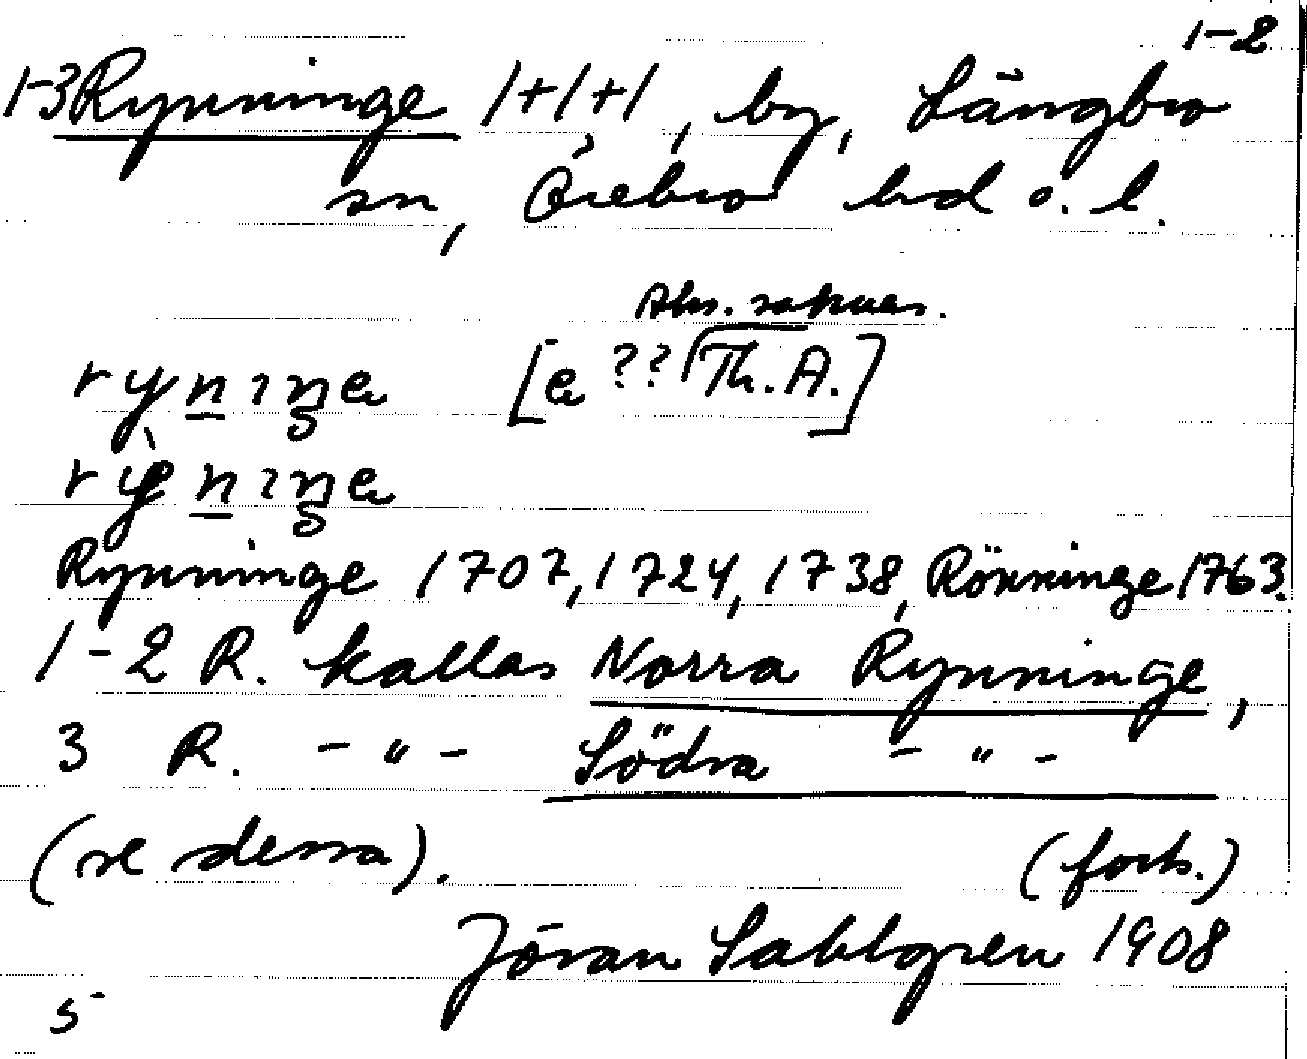 1-2
1-3 Rynninge 1+1+1, by, Längbro
sn, Örebro hd o. l.
Aks. saknas.
rynıŋe [e ?? Th. A.]
rỳnıŋe
Rynninge 1707, 1724, 1738, Rönninge 1763.
1-2 R. kallas Norra Rynninge,
3 R. - " - Södra - " -
(se dessa). (forts.)
Jöran Sahlgren 1908
5